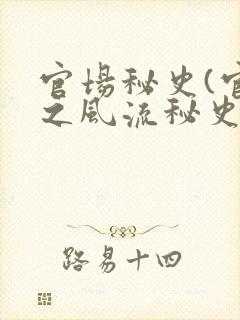 官场秘史(官
之风流秘史
路易十四